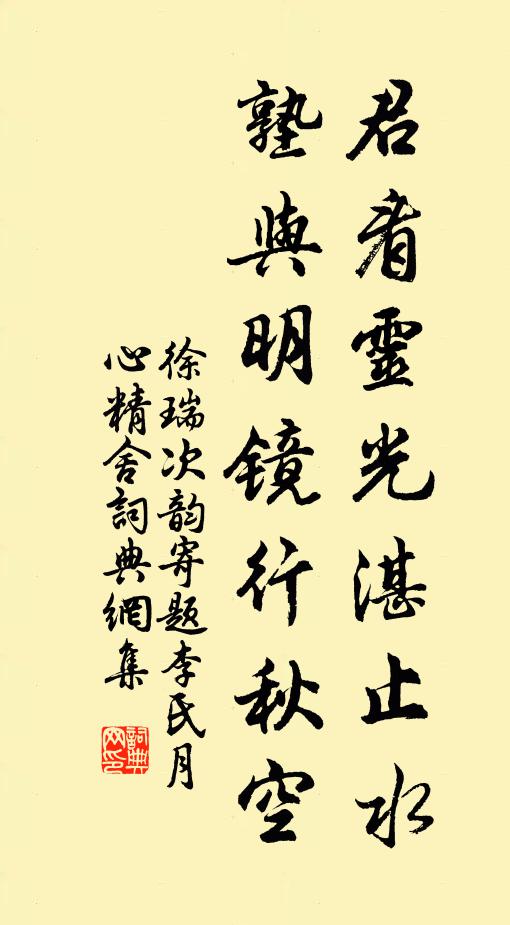 君看靈光湛止水
孰與明鏡行秋空
徐瑞次韵寄題李氏月
心精舍詞典網集
詞典
网印